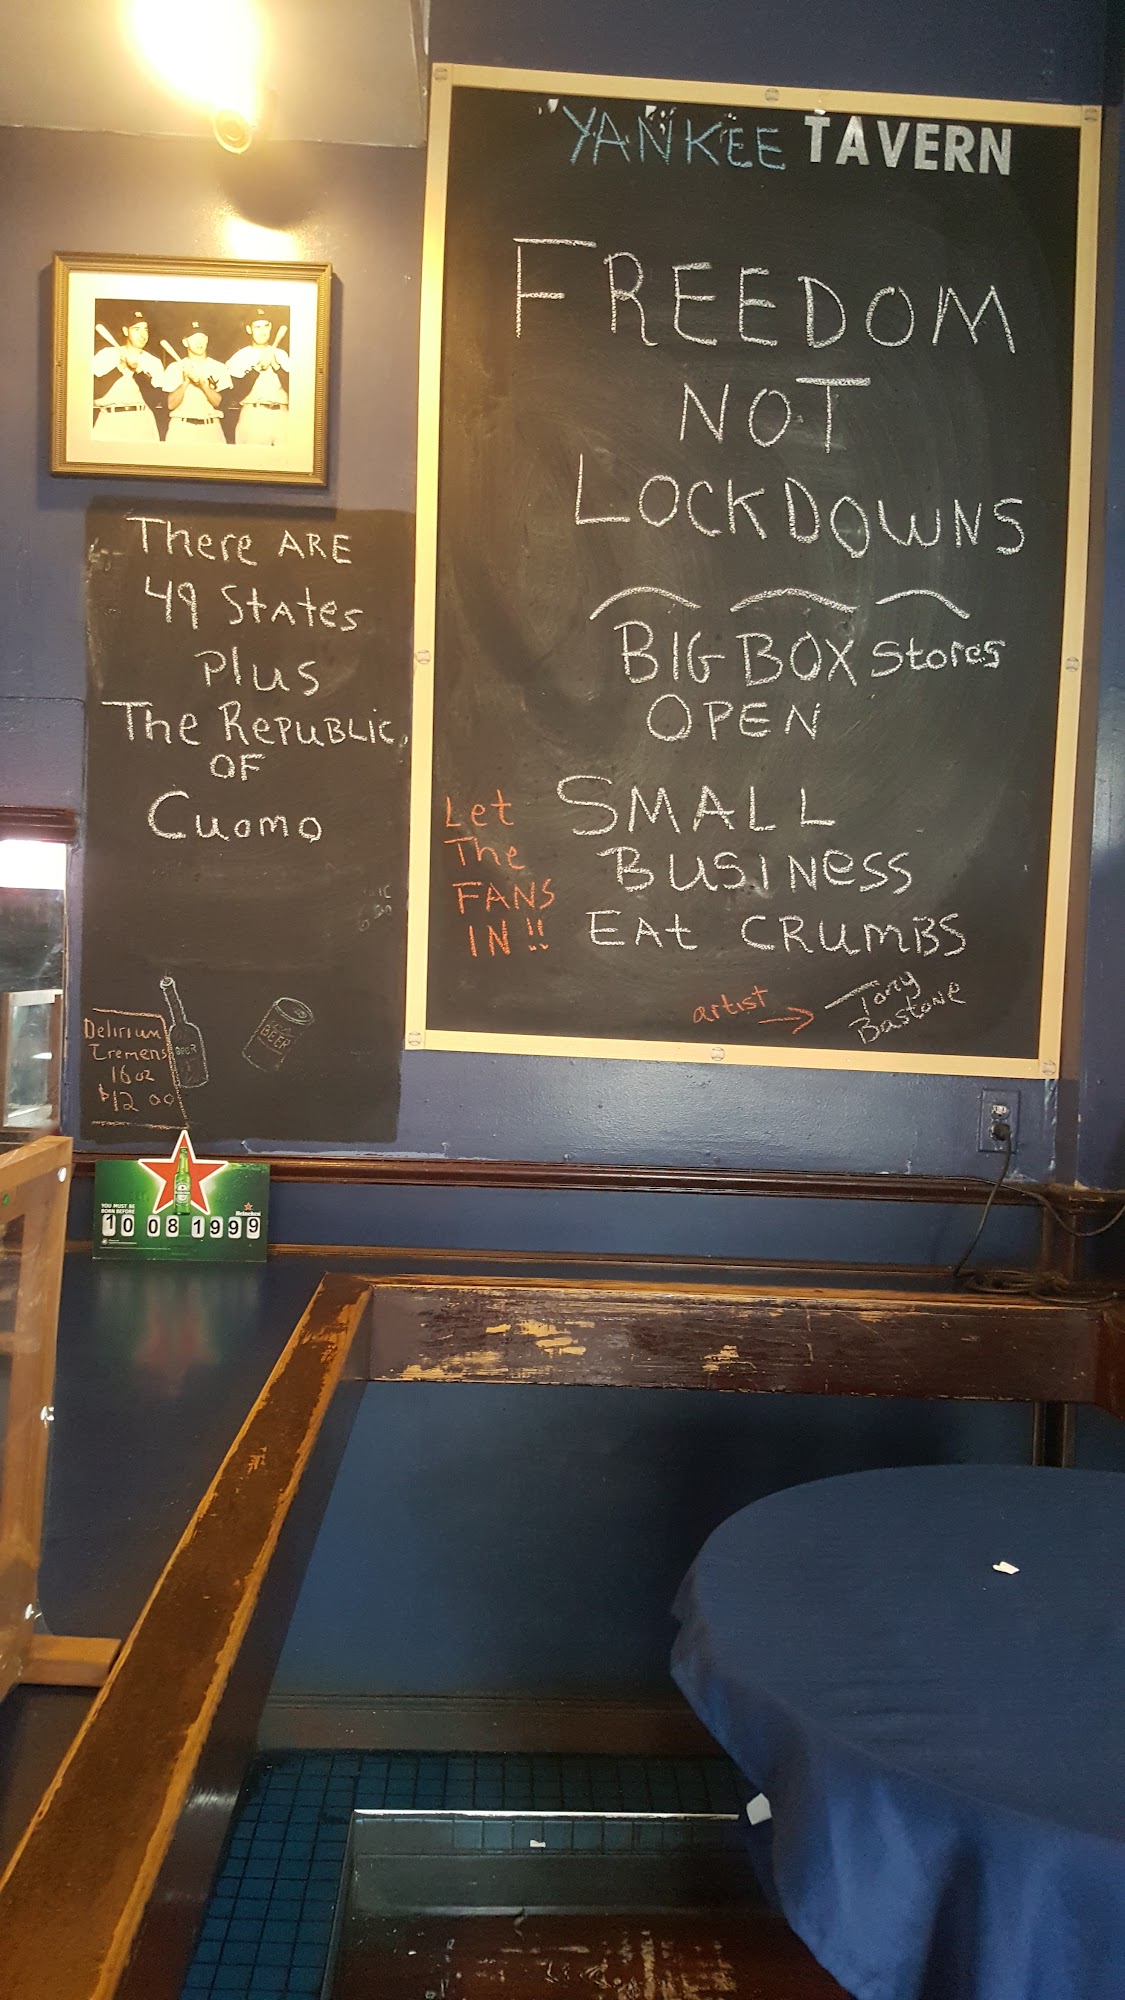 "YANKEE TAVERN
FREEDOM
NOT
LOCKDOWNS
BIG BOX Stores
OPEN
SMALL
BUSINess
EAt CRUMBS
Let
The
FANS
IN!!
artist → Tony
Bastone
There ARE
49 States
Plus
The REPUBLIC
OF
Cuomo
Delirium
Tremens
16oz
$12 00
BEER
BEER
YOU MUST BE
BORN BEFORE
Heineken
10 08 1999